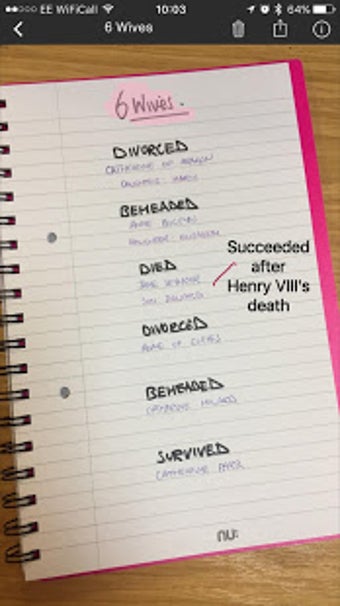 EE WiFiCall 10:03 64%
6 Wives
6 Wives.
DIVORCED
CATHERINE OF ARAGON
DAUGHTER: MARY
BEHEADED
ANNE BOLEYN
DAUGHTER: ELIZABETH
DIED
JANE SEYMOUR
SON EDWARD
Succeeded
after
Henry VIII's
death
DIVORCED
ANNE OF CLEVES
BEHEADED
HOWARD
SURVIVED
CATHERINE PARR
nu: